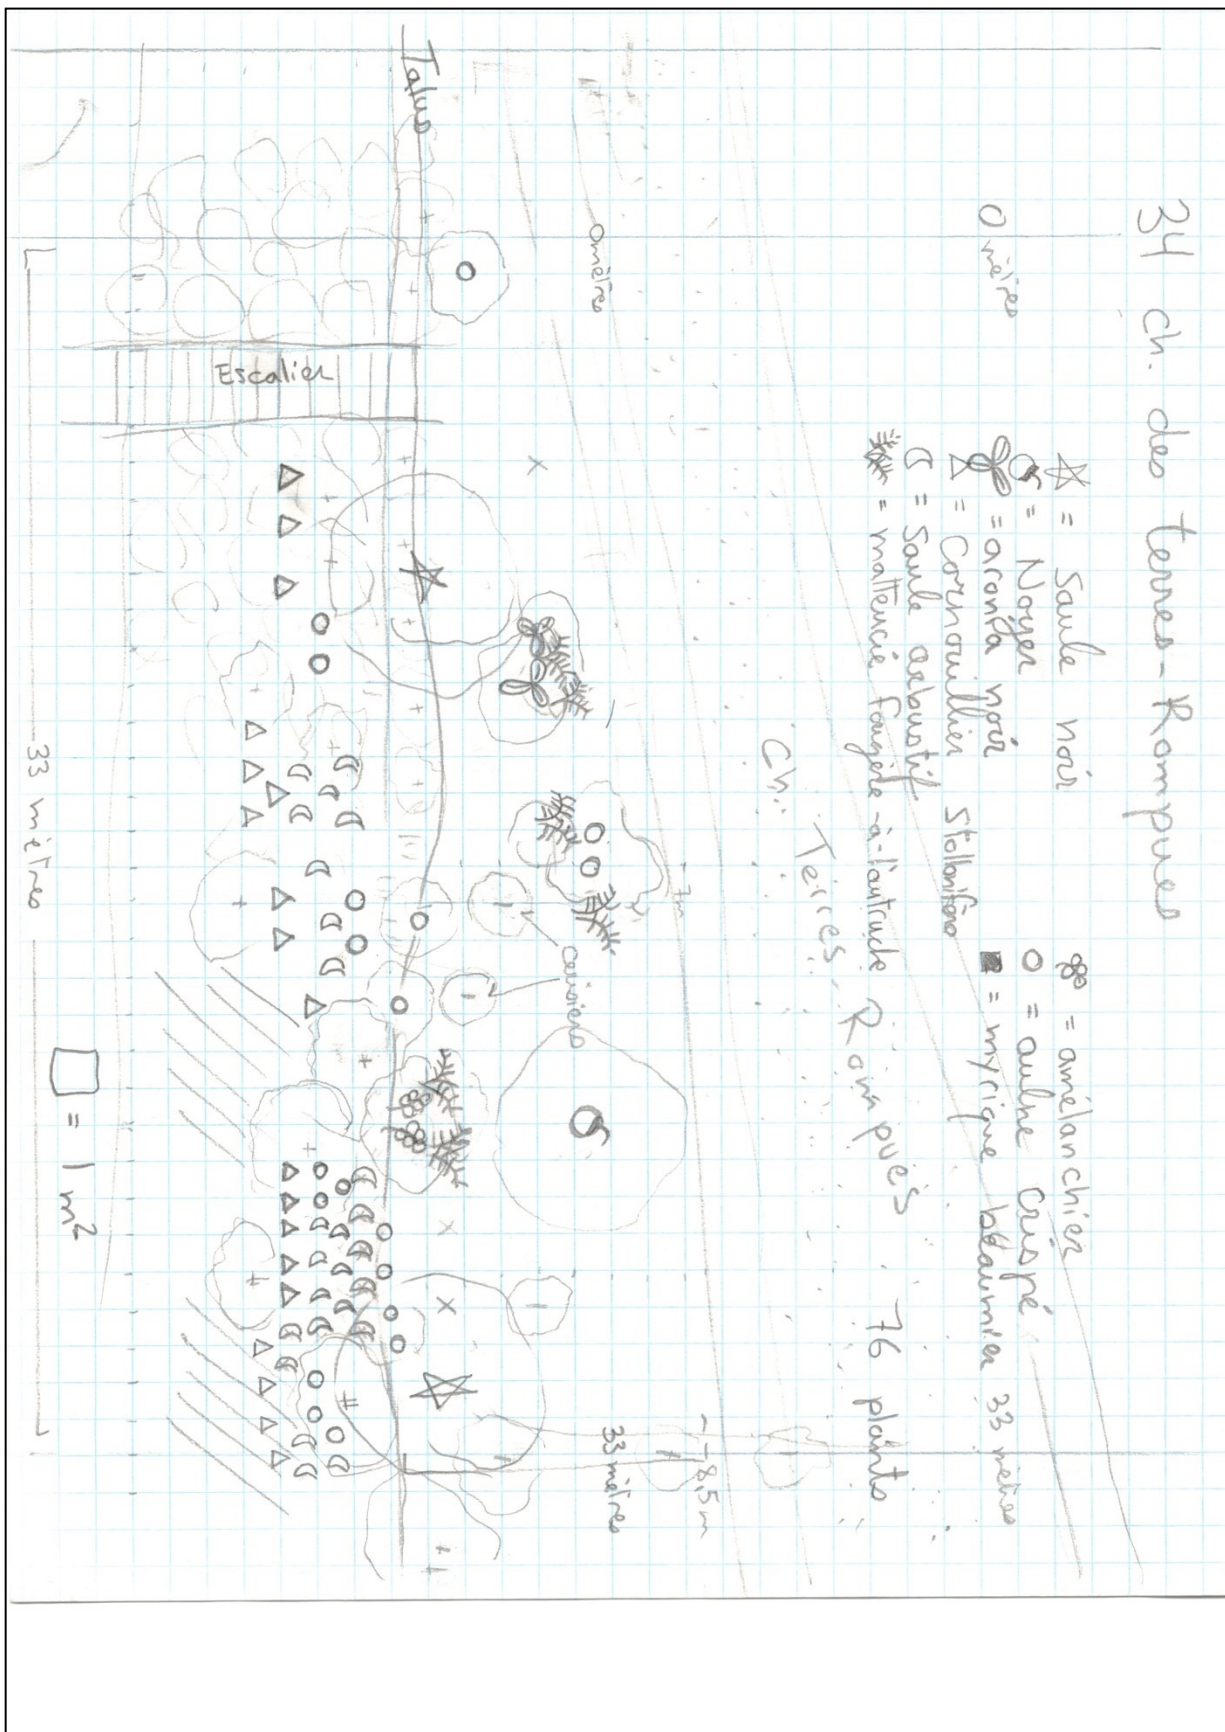 34 ch. des terres-Rompues
☆ = Saule noir
= Noyer
= aronia noir
△ = Cornouillier Stolonifère
= Saule arbustif
= matteucie fougère-à-l'autruche
= amélanchier
O = aulne crispé
■ = myrique beaumier
0 mètres
33 mètres
76 plants
Ch. Terres Rompues
0 mètres
~7m
~8,5m
33 mètres
cerisiers
Talus
Escalier
33 mètres
□ = 1 m²